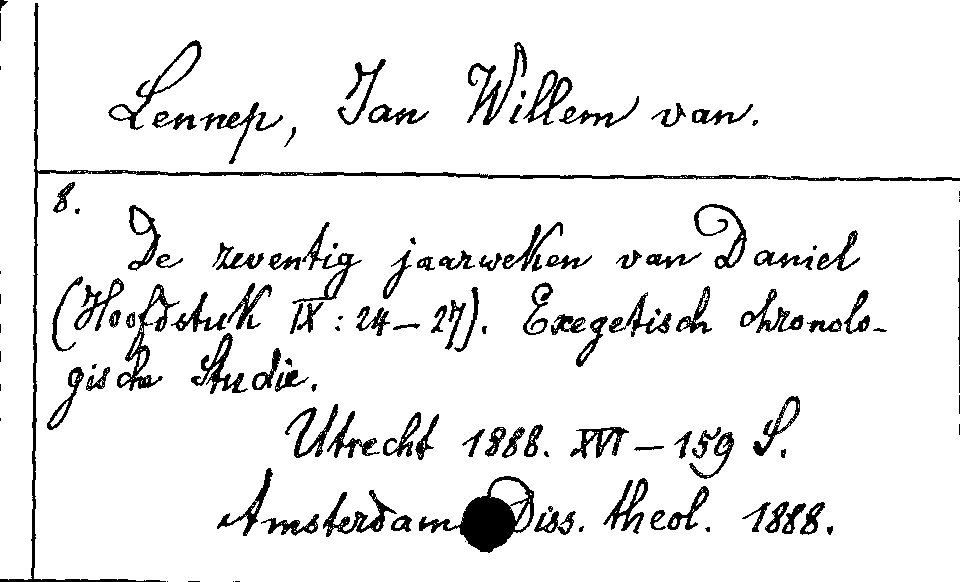 Lennep, Jan Willem van.
8.
De zeventig jaarweken van Daniel
(Hoofdstuk IX: 24-27). Exegetisch chronolo-
gische Studie.
Utrecht 1888. XVI-159 S.
Amsterdam Diss. theol. 1888.